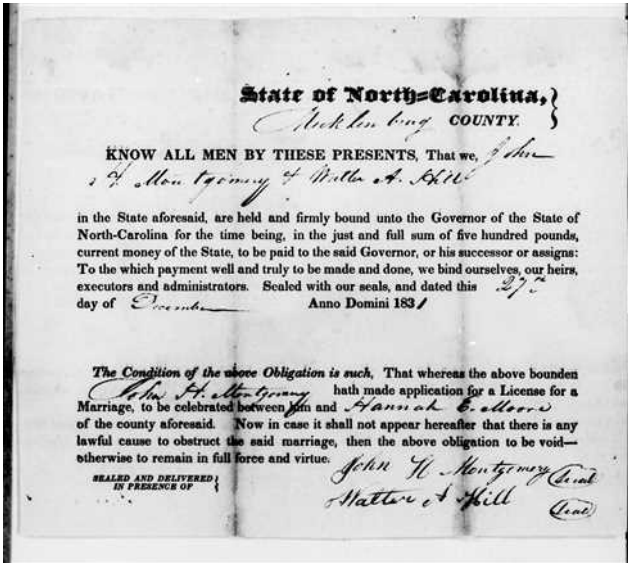 State of North-Carolina,
Mecklenburg COUNTY.
KNOW ALL MEN BY THESE PRESENTS, That we, John
H Montgomery & Walter A. Hill
in the State aforesaid, are held and firmly bound unto the Governor of the State of
North-Carolina for the time being, in the just and full sum of five hundred pounds,
current money of the State, to be paid to the said Governor, or his successor or assigns:
To the which payment well and truly to be made and done, we bind ourselves, our heirs,
executors and administrators. Sealed with our seals, and dated this 27th
day of December Anno Domini 1831
The Condition of the above Obligation is such, That whereas the above bounden
John H. Montgomery hath made application for a License for a
Marriage, to be celebrated between him and Hannah E. Moore
of the county aforesaid. Now in case it shall not appear hereafter that there is any
lawful cause to obstruct the said marriage, then the above obligation to be void—
otherwise to remain in full force and virtue.
SEALED AND DELIVERED
IN PRESENCE OF
John H Montgomery (Seal)
Walter A Hill (Seal)